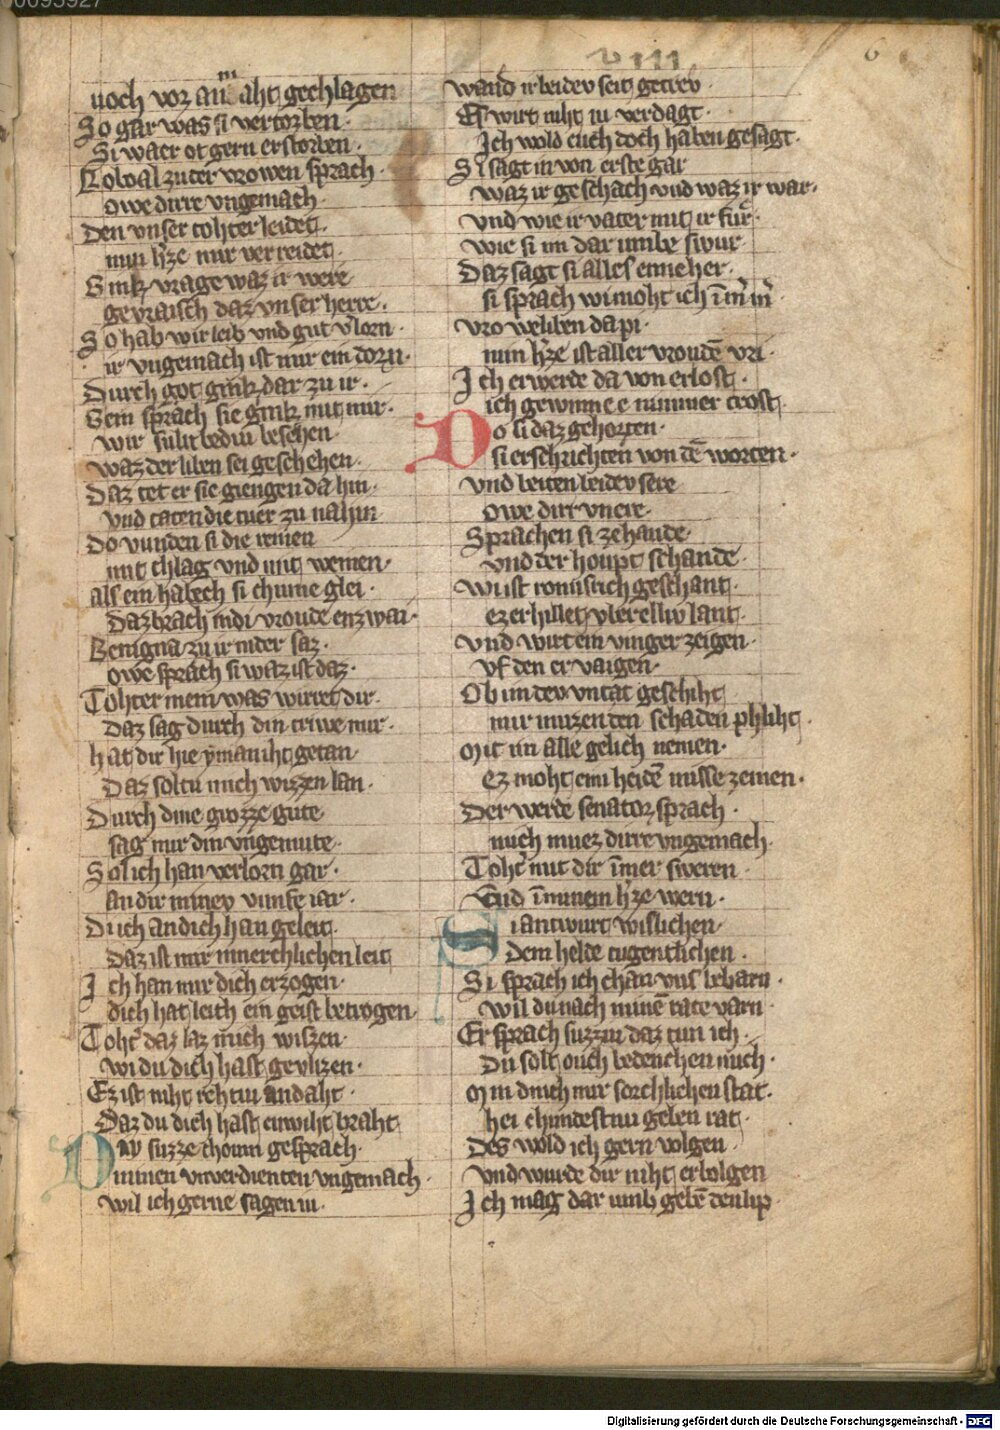 viii
6
noch vor am aht gechlagen
So gar was si vertorben ·
Si waer ot gern erstorben ·
Toboal zu der vrowen sprach ·
owe dirre vngemach ·
Den vnser tohter leidet ·
min h'ze mir verreidet ·
Gink vrage waz ir were
gevraisch daz vnser herre ·
So hab wir leib vnd gut v'lorn ·
ir vngemach ist mir ein dorn ·
Durch got gink dar zu ir ·
Sein sprach sie gink mit mir ·
wir suln bediu besehen ·
waz der liben sei geschehen ·
Daz tet er sie giengen da hin ·
vnd taten die tuer zu nahin
Do vunden si die reinen
mit chlag vnd mit weinen ·
als ein habech si chume glei ·
Daz brach in di vroude enzwai ·
Benigna zu ir nider saz ·
owe sprach si waz ist daz ·
Tohter mein was wirret dir ·
Daz sag durch din triwe mir ·
hat dir hie ÿman iht getan ·
Daz soltu mich wizzen lan ·
Durch dine grozze gute
sag mir din vngemute ·
Sol ich han verlorn gar ·
an dir miney vunfe iar ·
Di ich an dich han geleit ·
Daz ist mir innerchlichen leit
Ich han mir dich erzogen ·
dich hat leith ein geist betrogen ·
Toht' daz laz mich wiszen ·
wi du dich hast gevlizen ·
Ez ist niht rehtiu andaht ·
Daz du dich hast enwiht braht
Diy suzze choum gesprach ·
minen vnverdienten vngemach ·
wil ich gerne sagen iu ·
wand ir beidev seit getrev ·
Es wirt niht iu verdagt ·
Ich wold euch doch haben gesagt ·
Si sagt in von erste gar
waz ir geschach vnd waz ir war ·
vnd wie ir vater mit ir fur ·
wie si im dar umbe swur ·
Daz sagt si alles enneher ·
si sprach wi moht ich im'm'
vro weliben da pi ·
min h'ze ist aller vroudē vri ·
Ich erwerde da von erlost ·
ich gewinne e nimmer trost ·
Do si daz gehorten ·
si erschrichten von dē worten ·
vnd beiten beidev sere
owe dirr vnere ·
Sprachen si zehande ·
vnd der houpt schande ·
wi ist romisrich geschant ·
ez erhillet vber elliv lant ·
vnd wirt ein vinger zeigen ·
vf den er vaigen ·
Ob im dev vntat geschiht
mir muzen den schaden phliht ·
Mit im alle gelich nemen ·
Ez moht eim heidē missezemen ·
Der werde senator sprach ·
mich muez dirre vngemach ·
Toht' mit dir īmer sweren ·
vnd in minem h'ze wern ·
Si antwurt wislichen ·
Dem helde tugentlichen ·
Si sprach ich chan vns bebarn ·
wil du nach minē rate varn ·
Er sprach suzziu daz tun ich ·
Du solt ouch bedenchen mich ·
Min dinich mir sorchlichen stat ·
hei chundestu geben rat ·
Des wold ich gern volgen ·
vnd wurde dir niht erbolgen
Ich mag dar umb gebē den lip ·
Digitalisierung gefördert durch die Deutsche Forschungsgemeinschaft - DFG